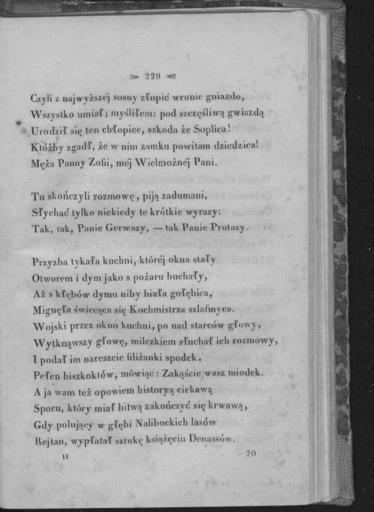 229
Czyli z najwyższéj sosny złupić wronie gniazdo,
Wszystko umiał; myśliłem: pod szczęśliwą gwiazdą
Urodził się ten chłopiec, szkoda że Soplica!
Któżby zgadł, że w nim zamku powitam dziedzica!
Męża Panny Zofii, méj Wielmożnéj Pani.
Tu skończyli rozmowę, piją zadumani,
Słychać tylko niekiedy te krótkie wyrazy:
Tak, tak, Panie Gerwazy, — tak Panie Protazy.
Przyzba tykała kuchni, któréj okna stały
Otworem i dym jako s pożaru buchały,
Aż s kłębów dymu niby biała gołębica,
Mignęła świecąca się Kuchmistrza szlafmyca.
Wojski przez okno kuchni, po nad starców głowy,
Wytknąwszy głowę, milczkiem słuchał ich rozmowy,
I podał im nareszcie filiżanki spodek,
Pełen biszkoktów, mówiąc: Zakąście wasz miodek.
A ja wam też opowiem historyą ciekawą
Sporu, który miał bitwą zakończyć się krwawą,
Gdy polujący w głębi Nalibockich lasów
Rejtan, wypłatał sztukę książęciu Denassów.
II 20